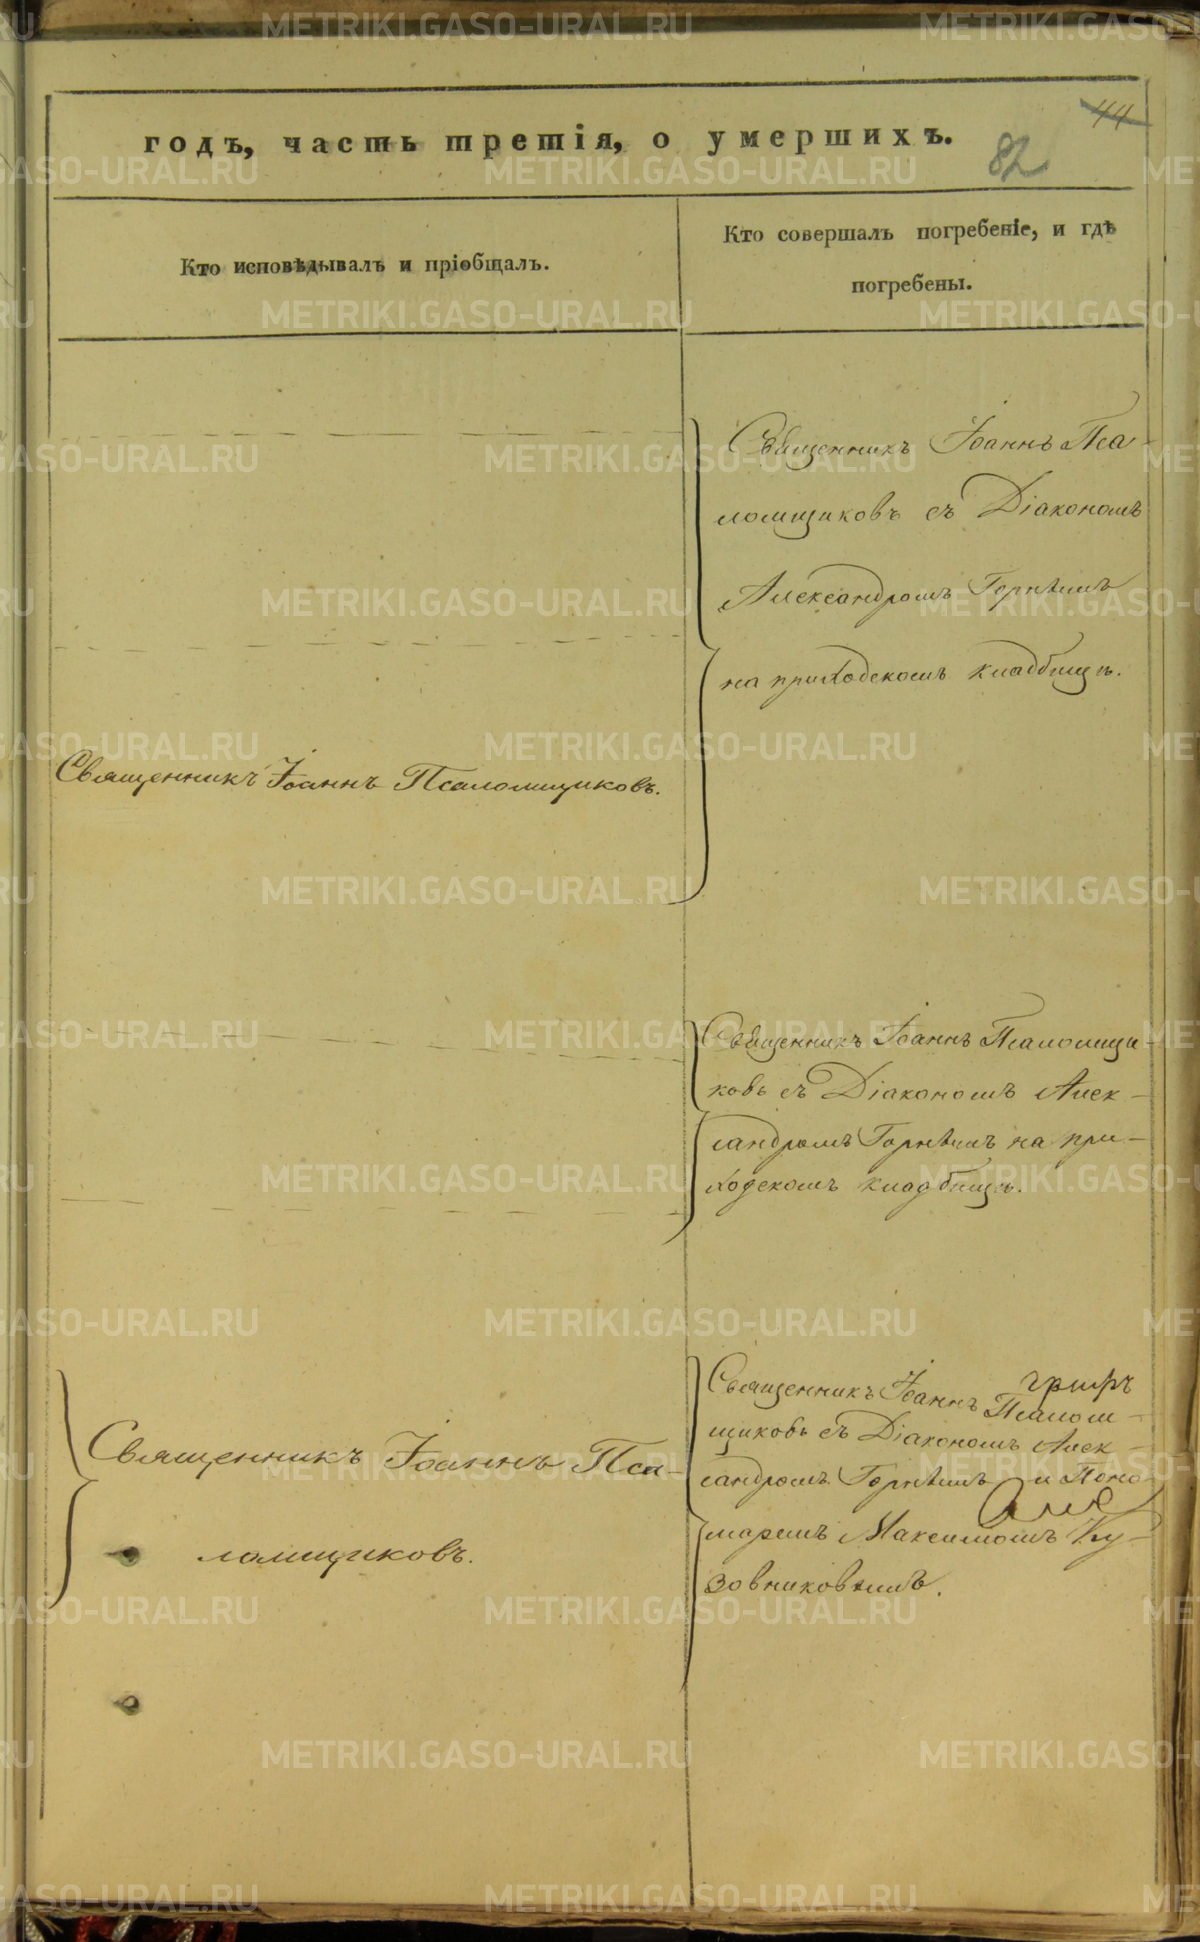 44
годъ, часть третія, о умершихъ.
82
Кто исповѣдывалъ и пріобщалъ.
Кто совершалъ погребеніе, и гдѣ
погребены.
Священникъ Іоаннъ Пса-
ломщиковъ съ Діакономъ
Александромъ Горнѣмъ
на приходскомъ кладбищѣ.
Священникъ Іоаннъ Псаломщиковъ.
Священникъ Іоаннъ Псаломщи-
ковъ съ Діакономъ Алек-
сандромъ Горнѣмъ на при-
ходскомъ кладбищѣ.
Священникъ Іоаннъ Псалом-
щиковъ съ Діакономъ Алек-
сандромъ Горнѣмъ и Поно-
маремъ Максимомъ Ку-
зовниковымъ.
Священникъ Іоаннъ Пса-
ломщиковъ.
METRIKI.GASO-URAL.RU